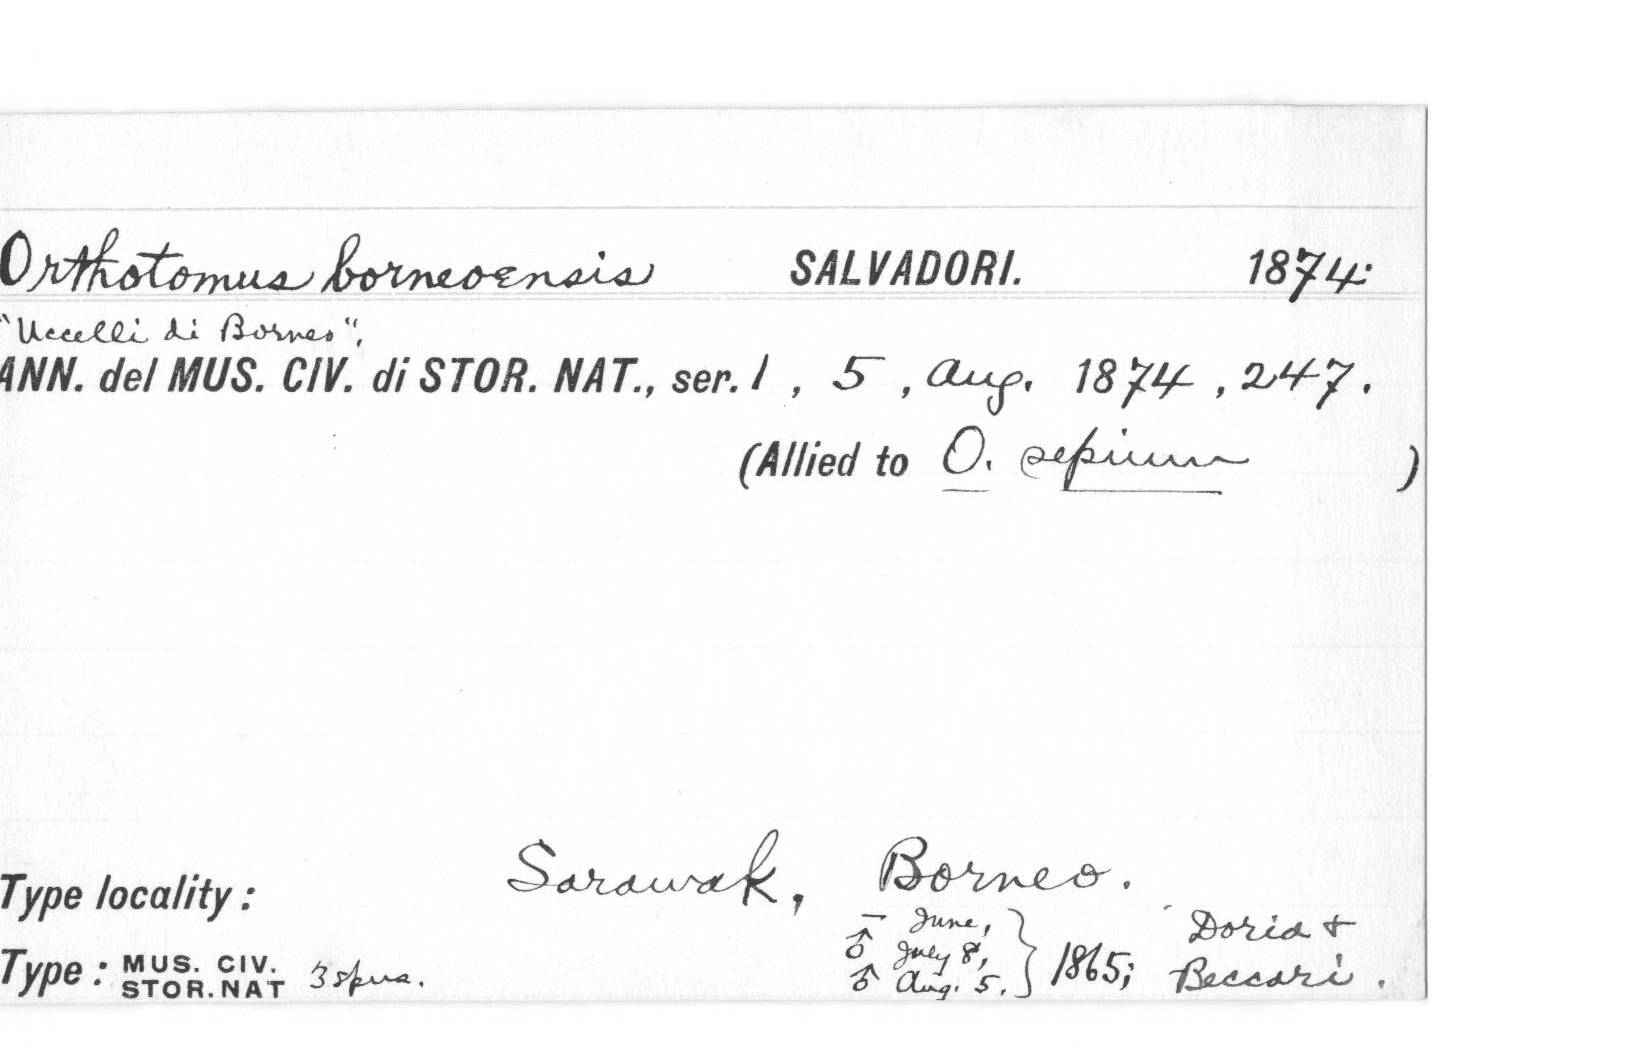 Orthotomus borneoensis SALVADORI. 1874.
"Uccelli di Borneo",
ANN. del MUS. CIV. di STOR. NAT., ser. 1, 5, Aug. 1874, 247.
(Allied to O. sepium )
Type locality: Sarawak, Borneo.
Type: MUS. CIV. STOR. NAT 3 spms.
— June,
♂ July 8,
♂ Aug. 5.
} 1865; Doria &
Beccari.